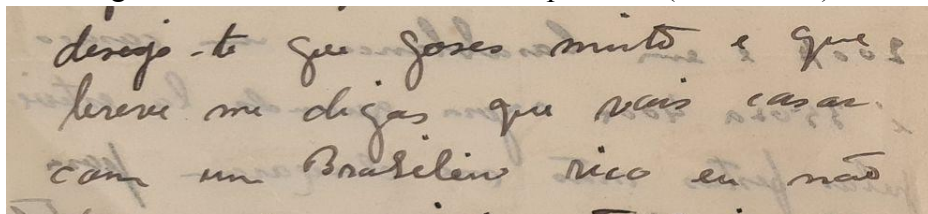 desejo-te que goses muito e que
breve me digas que vais casar
com um Brasileiro rico eu não